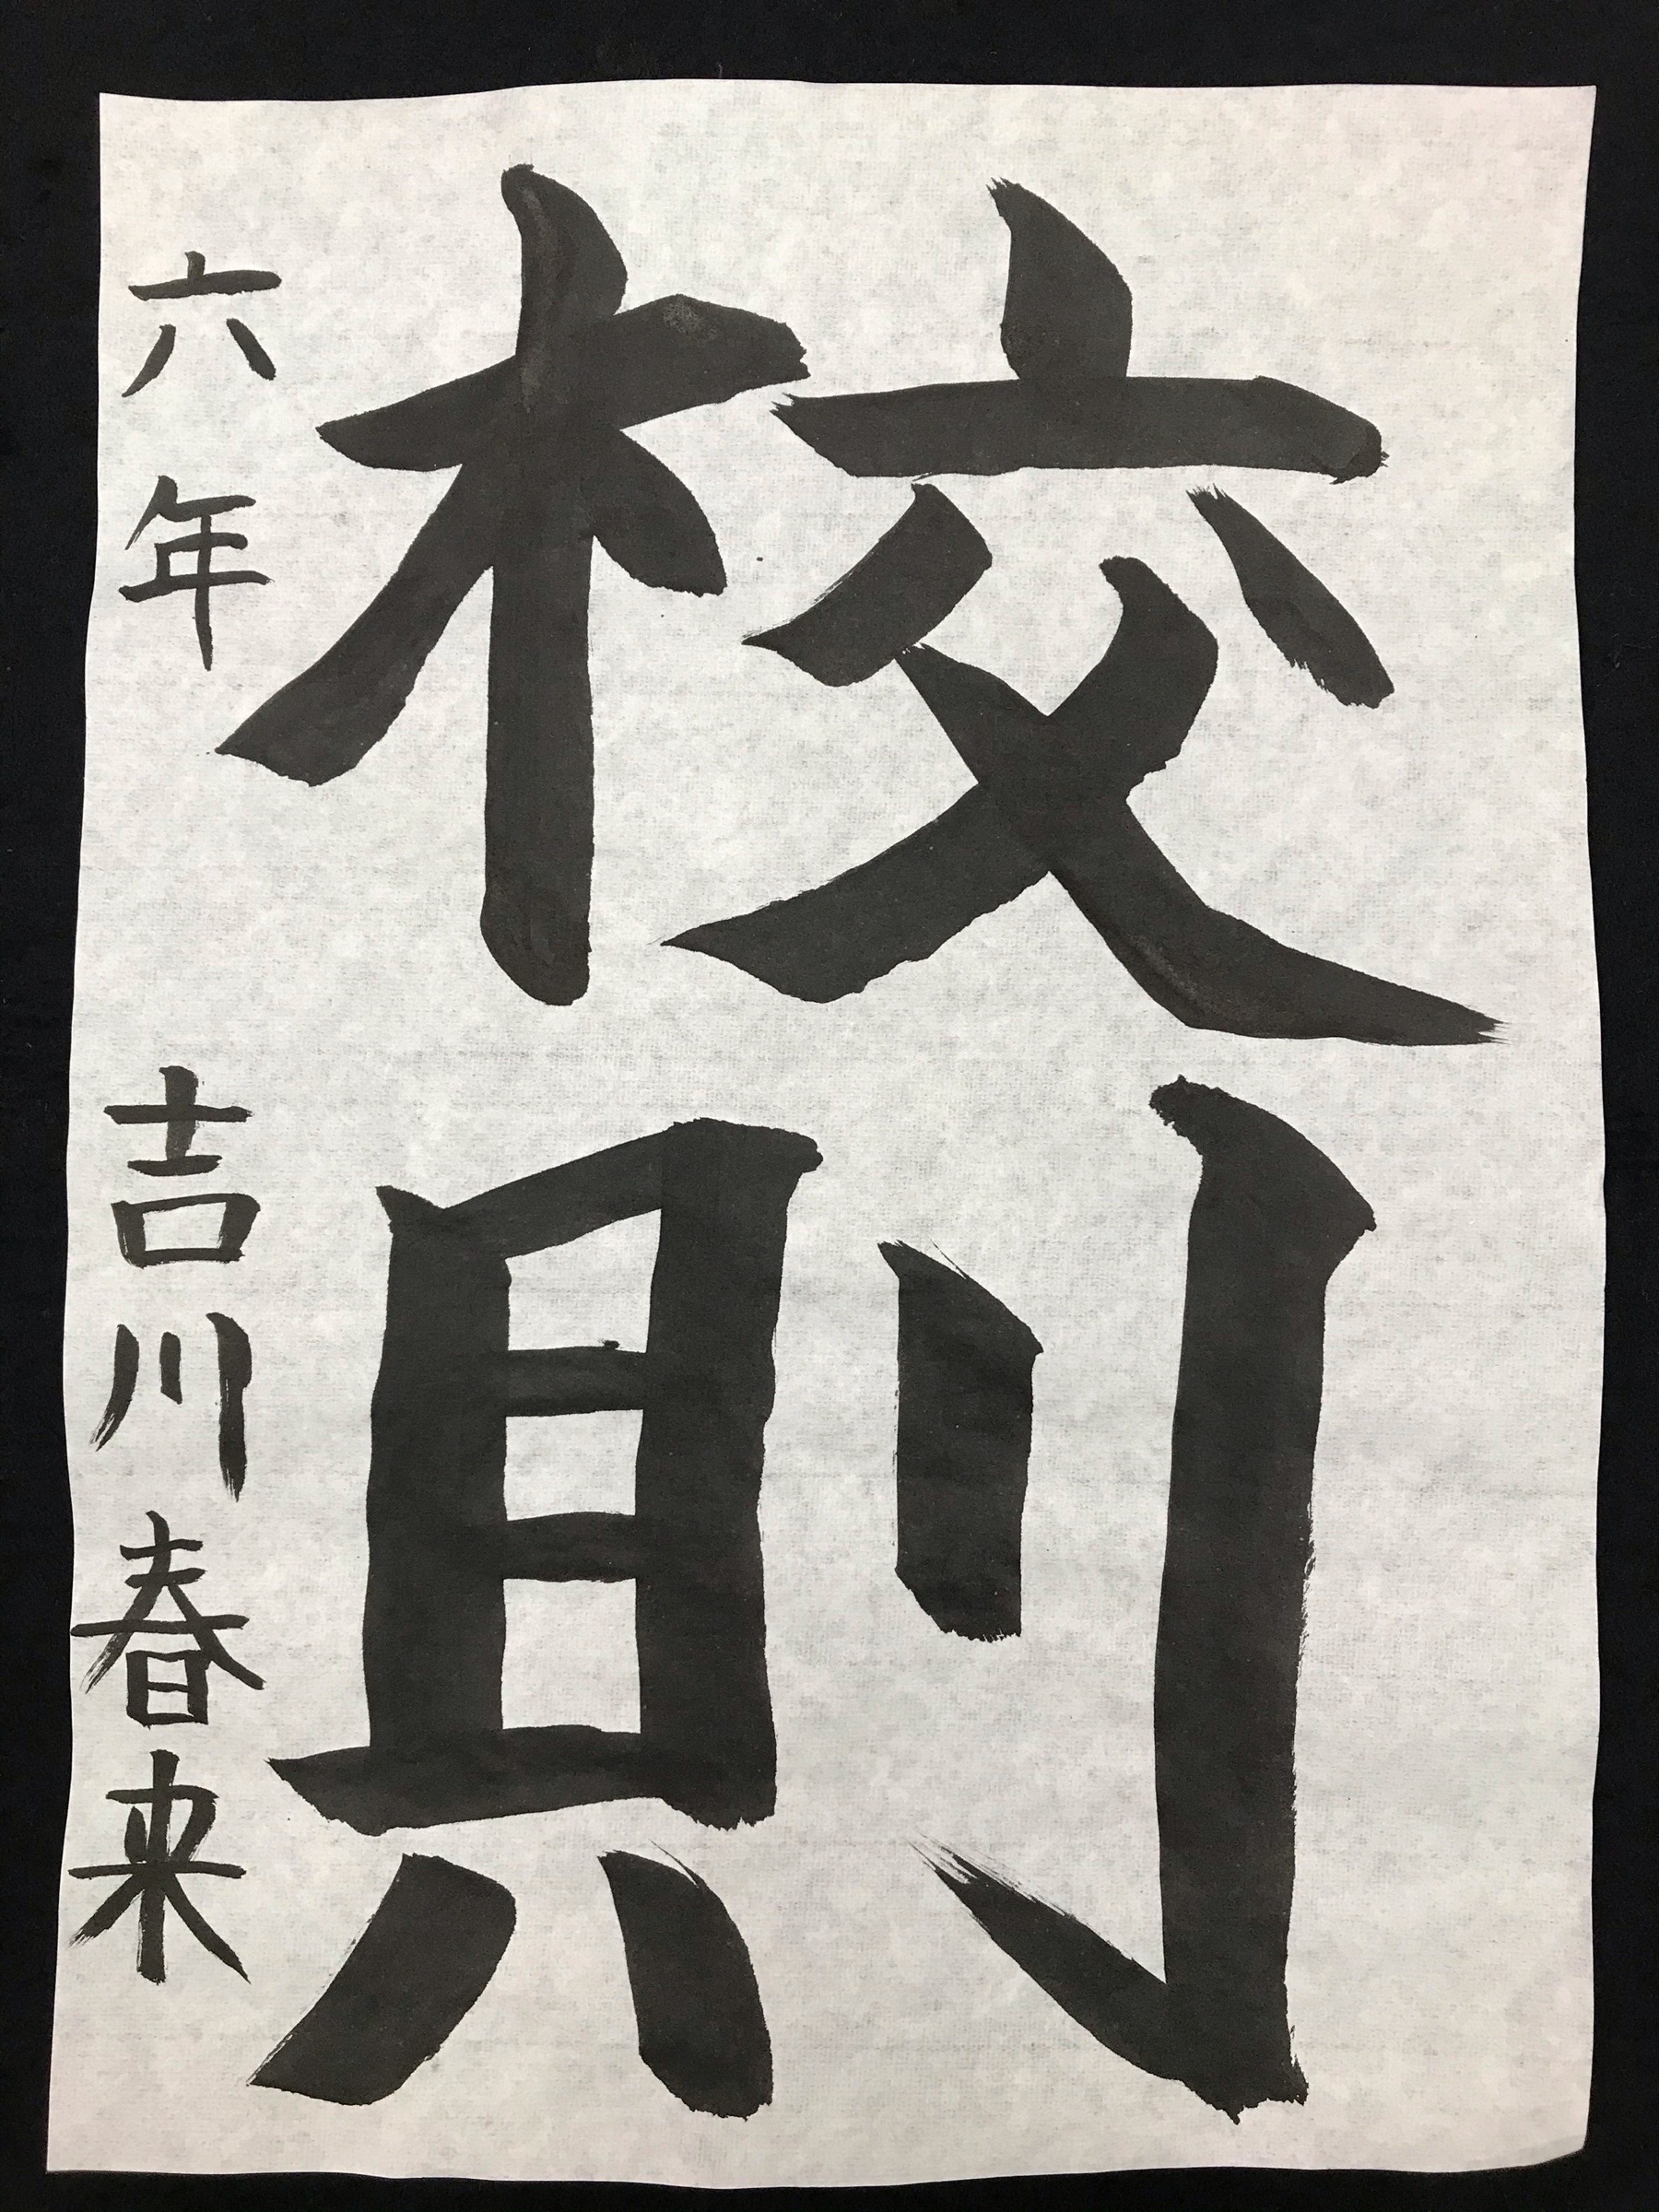 校則
六年 吉川春来